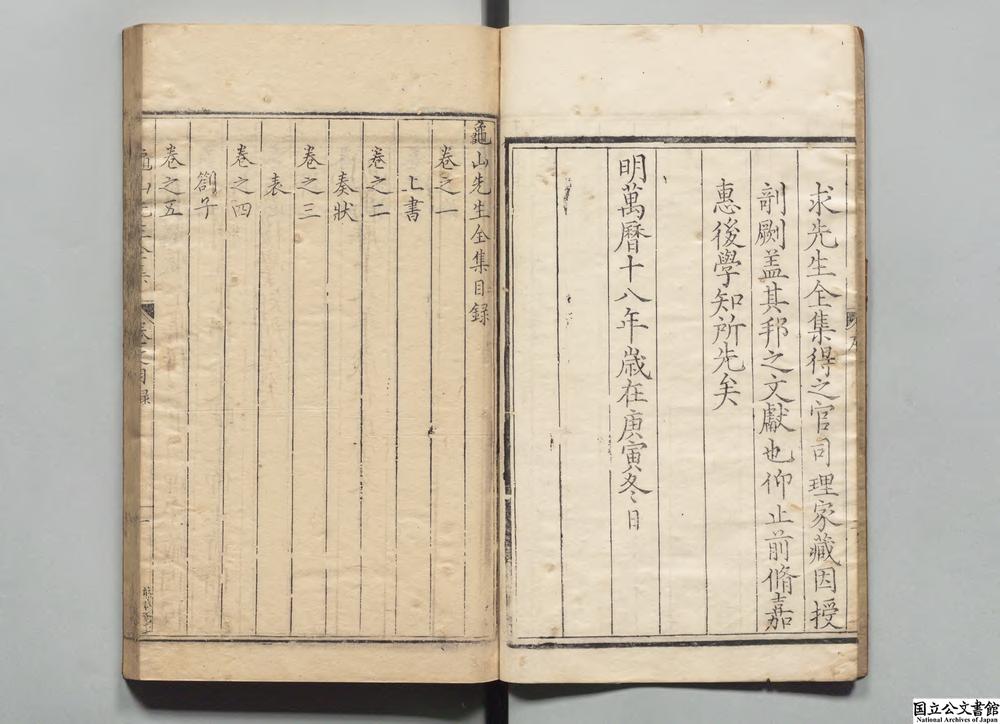 求先生全集得之官司理家藏因授
剞劂盖其邦之文獻也仰止前脩嘉
惠後學知所先矣
明萬曆十八年歲在庚寅冬日
龜山先生全集目錄
卷之一
上書
卷之二
奏狀
卷之三
表
卷之四
劄子
卷之五
龜山先生全集
卷之目錄
一
国立公文書館
National Archives of Japan